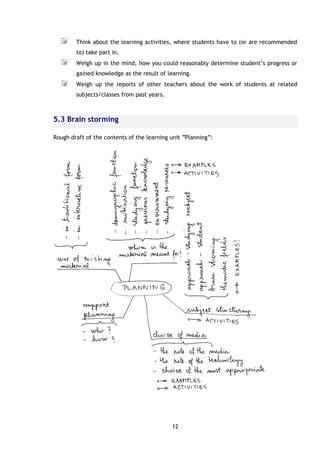 Think about the learning activities, where students have to (or are recommended
to) take part in.
Weigh up in the mind, how you could reasonably determine student's progress or
gained knowledge as the result of learning.
Weigh up the reports of other teachers about the work of students at related
subjects/classes from past years.
5.3 Brain storming
Rough draft of the contents of the learning unit "Planning":
- in traditional form
- in interactive form
use of existing
material
- demographic function
- motivation
- studying function
- previous knowledge
- environment
- studying resources
→ EXAMPLES
→ ACTIVITIES
whom is the
material meant for?
approach - studying subject
approach - student
brain storming
thematic fields
→ EXAMPLES!
subject structuring
→ ACTIVITIES
PLANNING
support
planning
- who?
- how?
choice of media
- the role of the media
- the role of the technology
- choice of the most appropriate
→ EXAMPLES
→ ACTIVITIES
12